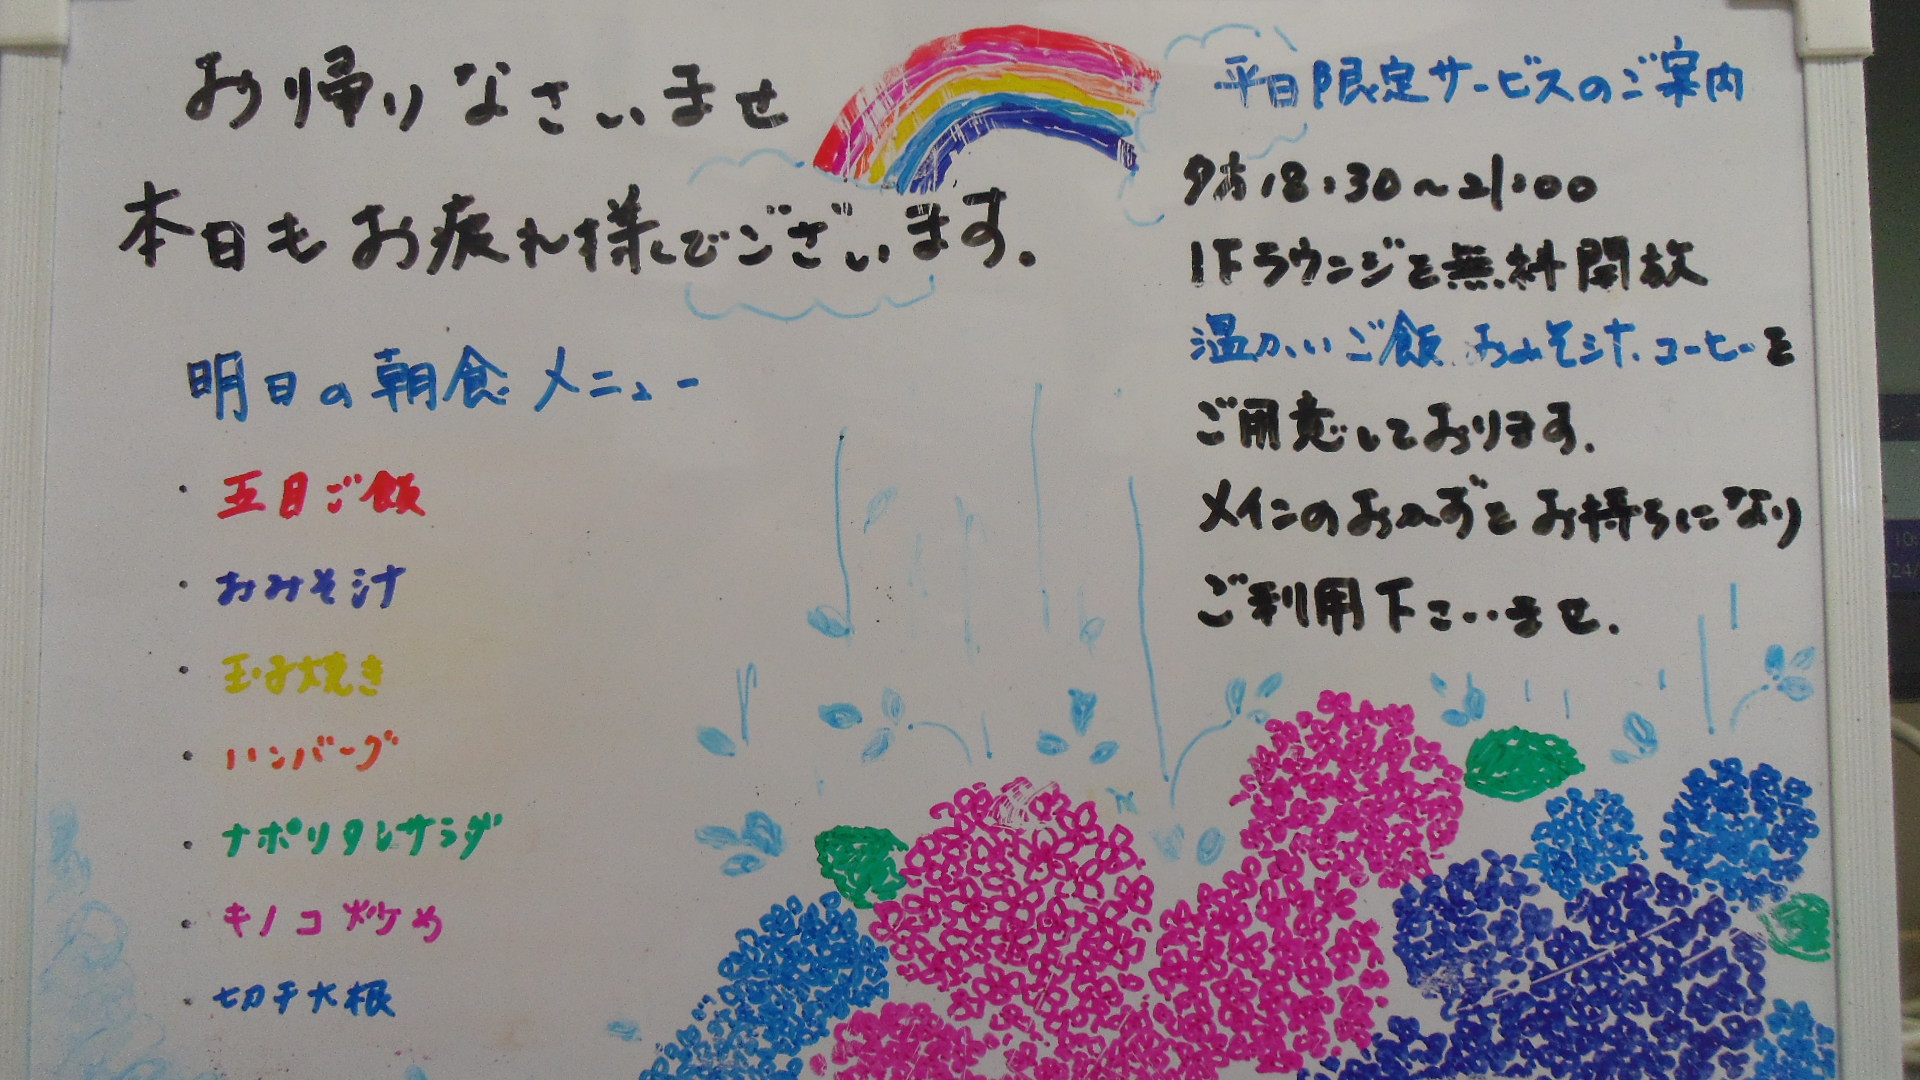 お帰りなさいませ
本日もお疲れ様でございます。
明日の朝食メニュー
・五目ご飯
・おみそ汁
・玉子焼き
・ハンバーグ
・ナポリタンサラダ
・キノコ炒め
・切干大根
平日限定サービスのご案内
夕方18:30〜21:00
1Fラウンジを無料開放
温かいご飯、おみそ汁、コーヒーを
ご用意しております。
メインのおかずをお持ちになり
ご利用下さいませ。